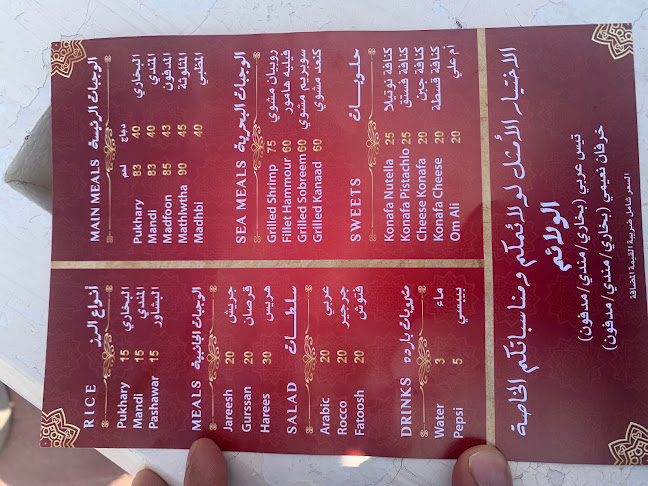 MAIN MEALS الوجبات الرئيسة
لحم دجاج
Pukhary 83 40 البخاري
Mandi 83 40 المندي
Madfoon 85 43 المدفون
Mathlwtha 90 45 المثلوثة
Madhbi 40 المظبي
SEA MEALS الوجبات البحرية
Grilled Shrimp 75 روبيان مشوي
Fillet Hammour 60 فيليه هامور
Grilled Sobreem 60 سوبريم مشوي
Grilled Kanaad 60 كنعد مشوي
SWEETS حلويات
Konafa Nutella 25 كنافة نوتيلا
Konafa Pistachio 25 كنافة فستق
Cheese Konafa 20 كنافة جبن
Konafa Cheese 20 كنافة قشطة
Om Ali 20 أم علي
RICE أنواع الرز
Pukhary 15 البخاري
Mandi 15 المندي
Pashawar 15 البشاور
MEALS الوجبات الجانبية
Jareesh 20 جريش
Gurssan 20 قرصان
Harees 30 هريس
SALAD سلطات
Arabic 20 عربي
Rocco 20 جرجير
Fatoosh 20 فتوش
DRINKS مشروبات بارده
Water 3 ماء
Pepsi 5 بيبسي
الاختيار الأمثل لولائمكم ومناسباتكم الخاصة
الولائم
تيس عربي (بخاري/مندي/مدفون)
خرفان نعيمي (بخاري/مندي/مدفون)
السعر شامل ضريبة القيمة المضافة